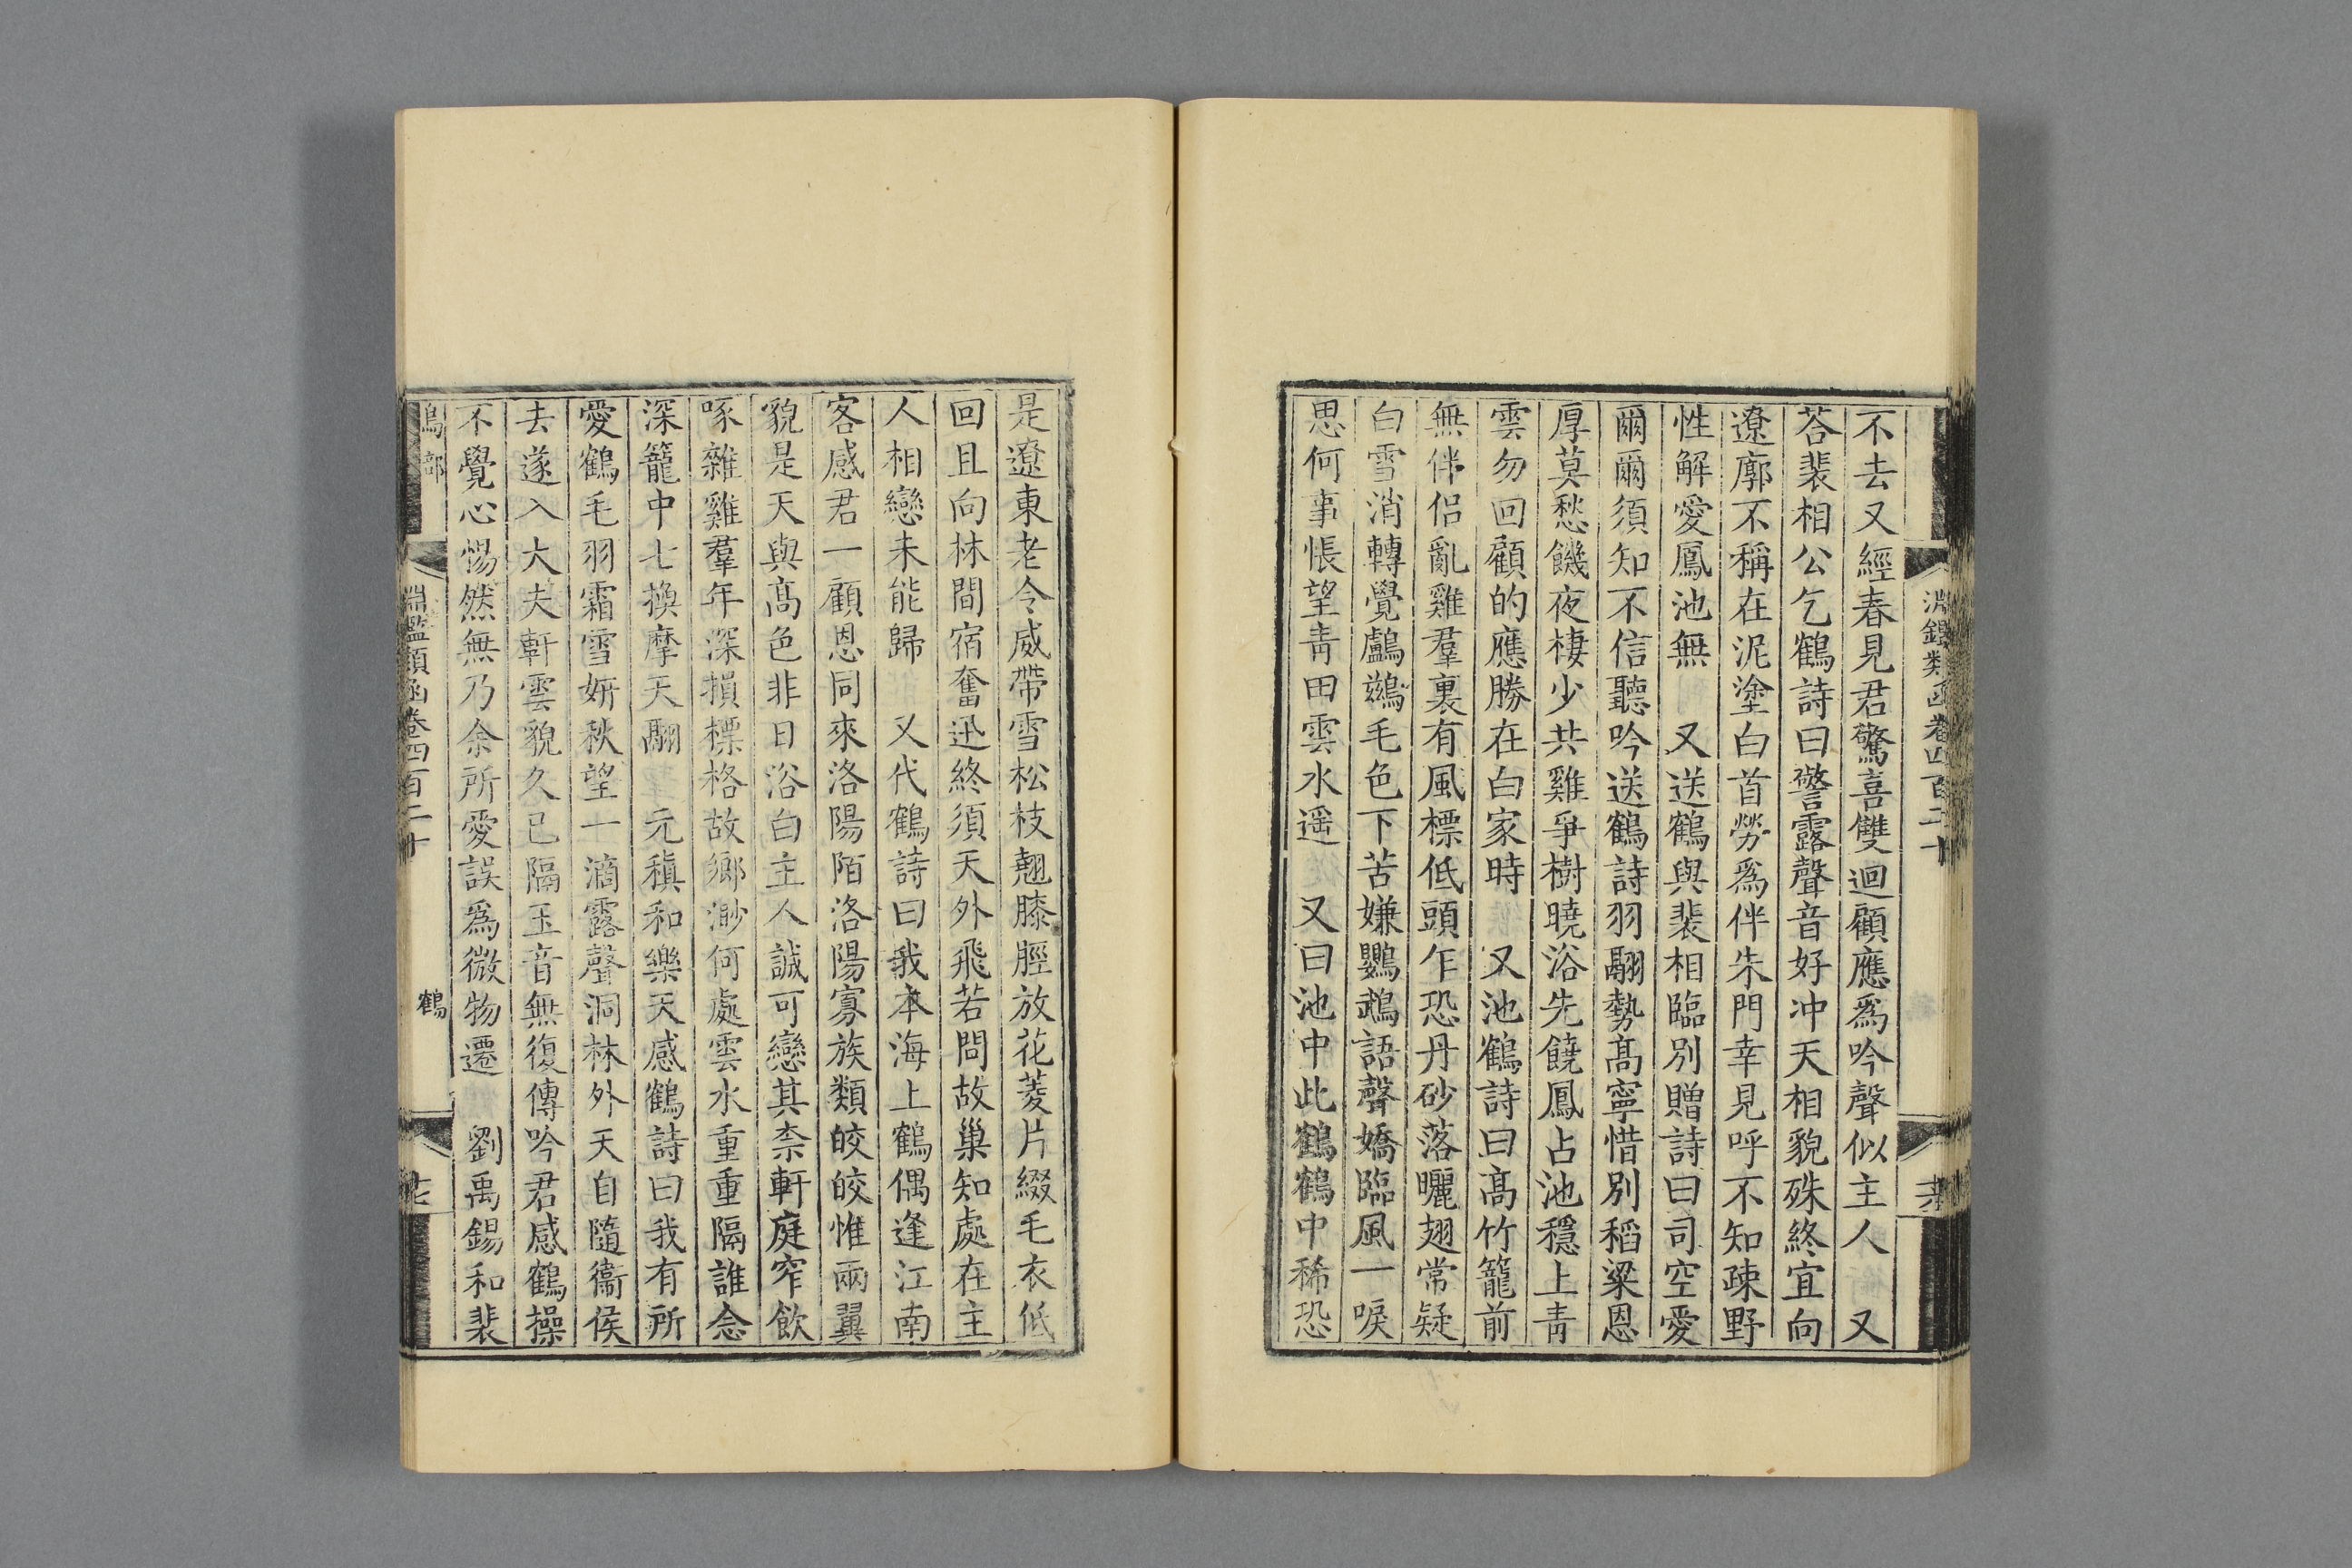 淵鑑類函卷四百二十
不去又經春見君驚喜雙迴顧應爲吟聲似主人 又
荅裴相公乞鶴詩曰警露聲音好冲天相貌殊終宜向
遼廓不稱在泥塗白首勞爲伴朱門幸見呼不知疎野
性解愛鳳池無 又送鶴與裴相臨別贈詩曰司空愛
爾爾須知不信聽吟送鶴詩羽翮勢髙寧惜別稻粱恩
厚莫愁饑夜棲少共雞爭樹曉浴先饒鳳占池穩上青
雲勿回顧的應勝在白家時 又池鶴詩曰髙竹籠前
無伴侣亂雞羣裏有風標低頭乍恐丹砂落曬翅常疑
白雪消轉覺鸕鷀毛色下苦嫌鸚鵡語聲嬌臨風一唳
思何事悵望青田雲水遥 又曰池中此鶴鶴中稀恐
是遼東老令威帶雪松枝翹膝脛放花菱片綴毛衣低
回且向林間宿奮迅終須天外飛若問故巢知處在主
人相戀未能歸 又代鶴詩曰我本海上鶴偶逢江南
客感君一顧恩同來洛陽陌洛陽寡族類皎皎惟兩翼
貌是天與髙色非日浴白主人誠可戀其柰軒庭窄飲
啄雜雞羣年深損標格故鄉渺何處雲水重重隔誰念
深籠中七換摩天翮 元稹和樂天感鶴詩曰我有所
愛鶴毛羽霜雪妍秋望一滴露聲洞林外天自隨衞侯
去遂入大夫軒雲貌久已隔玉音無復傳吟君感鶴操
不覺心惕然無乃余所愛誤爲微物遷 劉禹錫和裴
鳥部 淵鑑類函卷四百二十 鶴